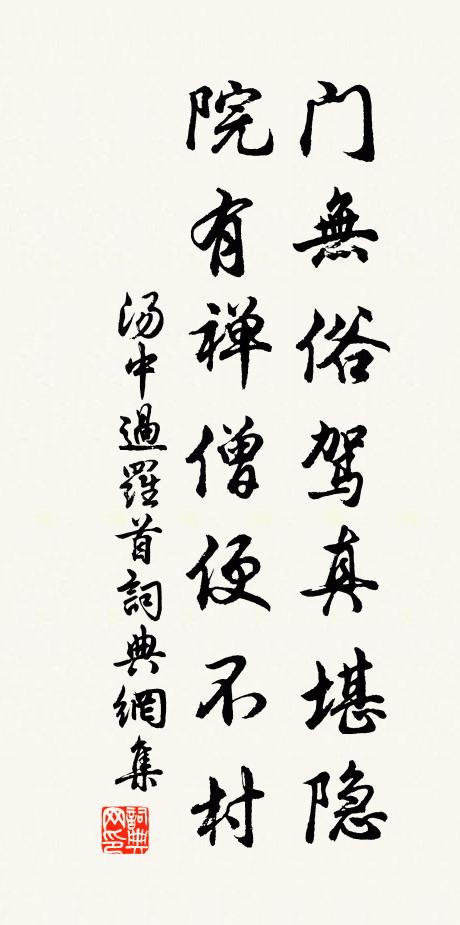 门無俗驾真堪隐
院有禅僧便不村
汤中過羅首詞典網集
詞典網印